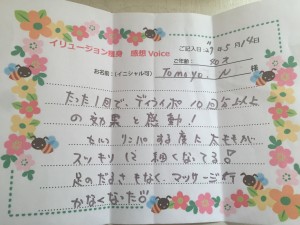 イリュージョン痩身 感想Voice
ご記入日 29年5月14日
ご年齢
お名前:(イニシャル可) Tomoyo. N 様
たった1回で、ダイヤイポ10回分以上
の効果と感動!
セルフリンパする度に太ももが
スッキリ細くなってる!
足のだるさもなく、マッサージ行
かなくなった!!